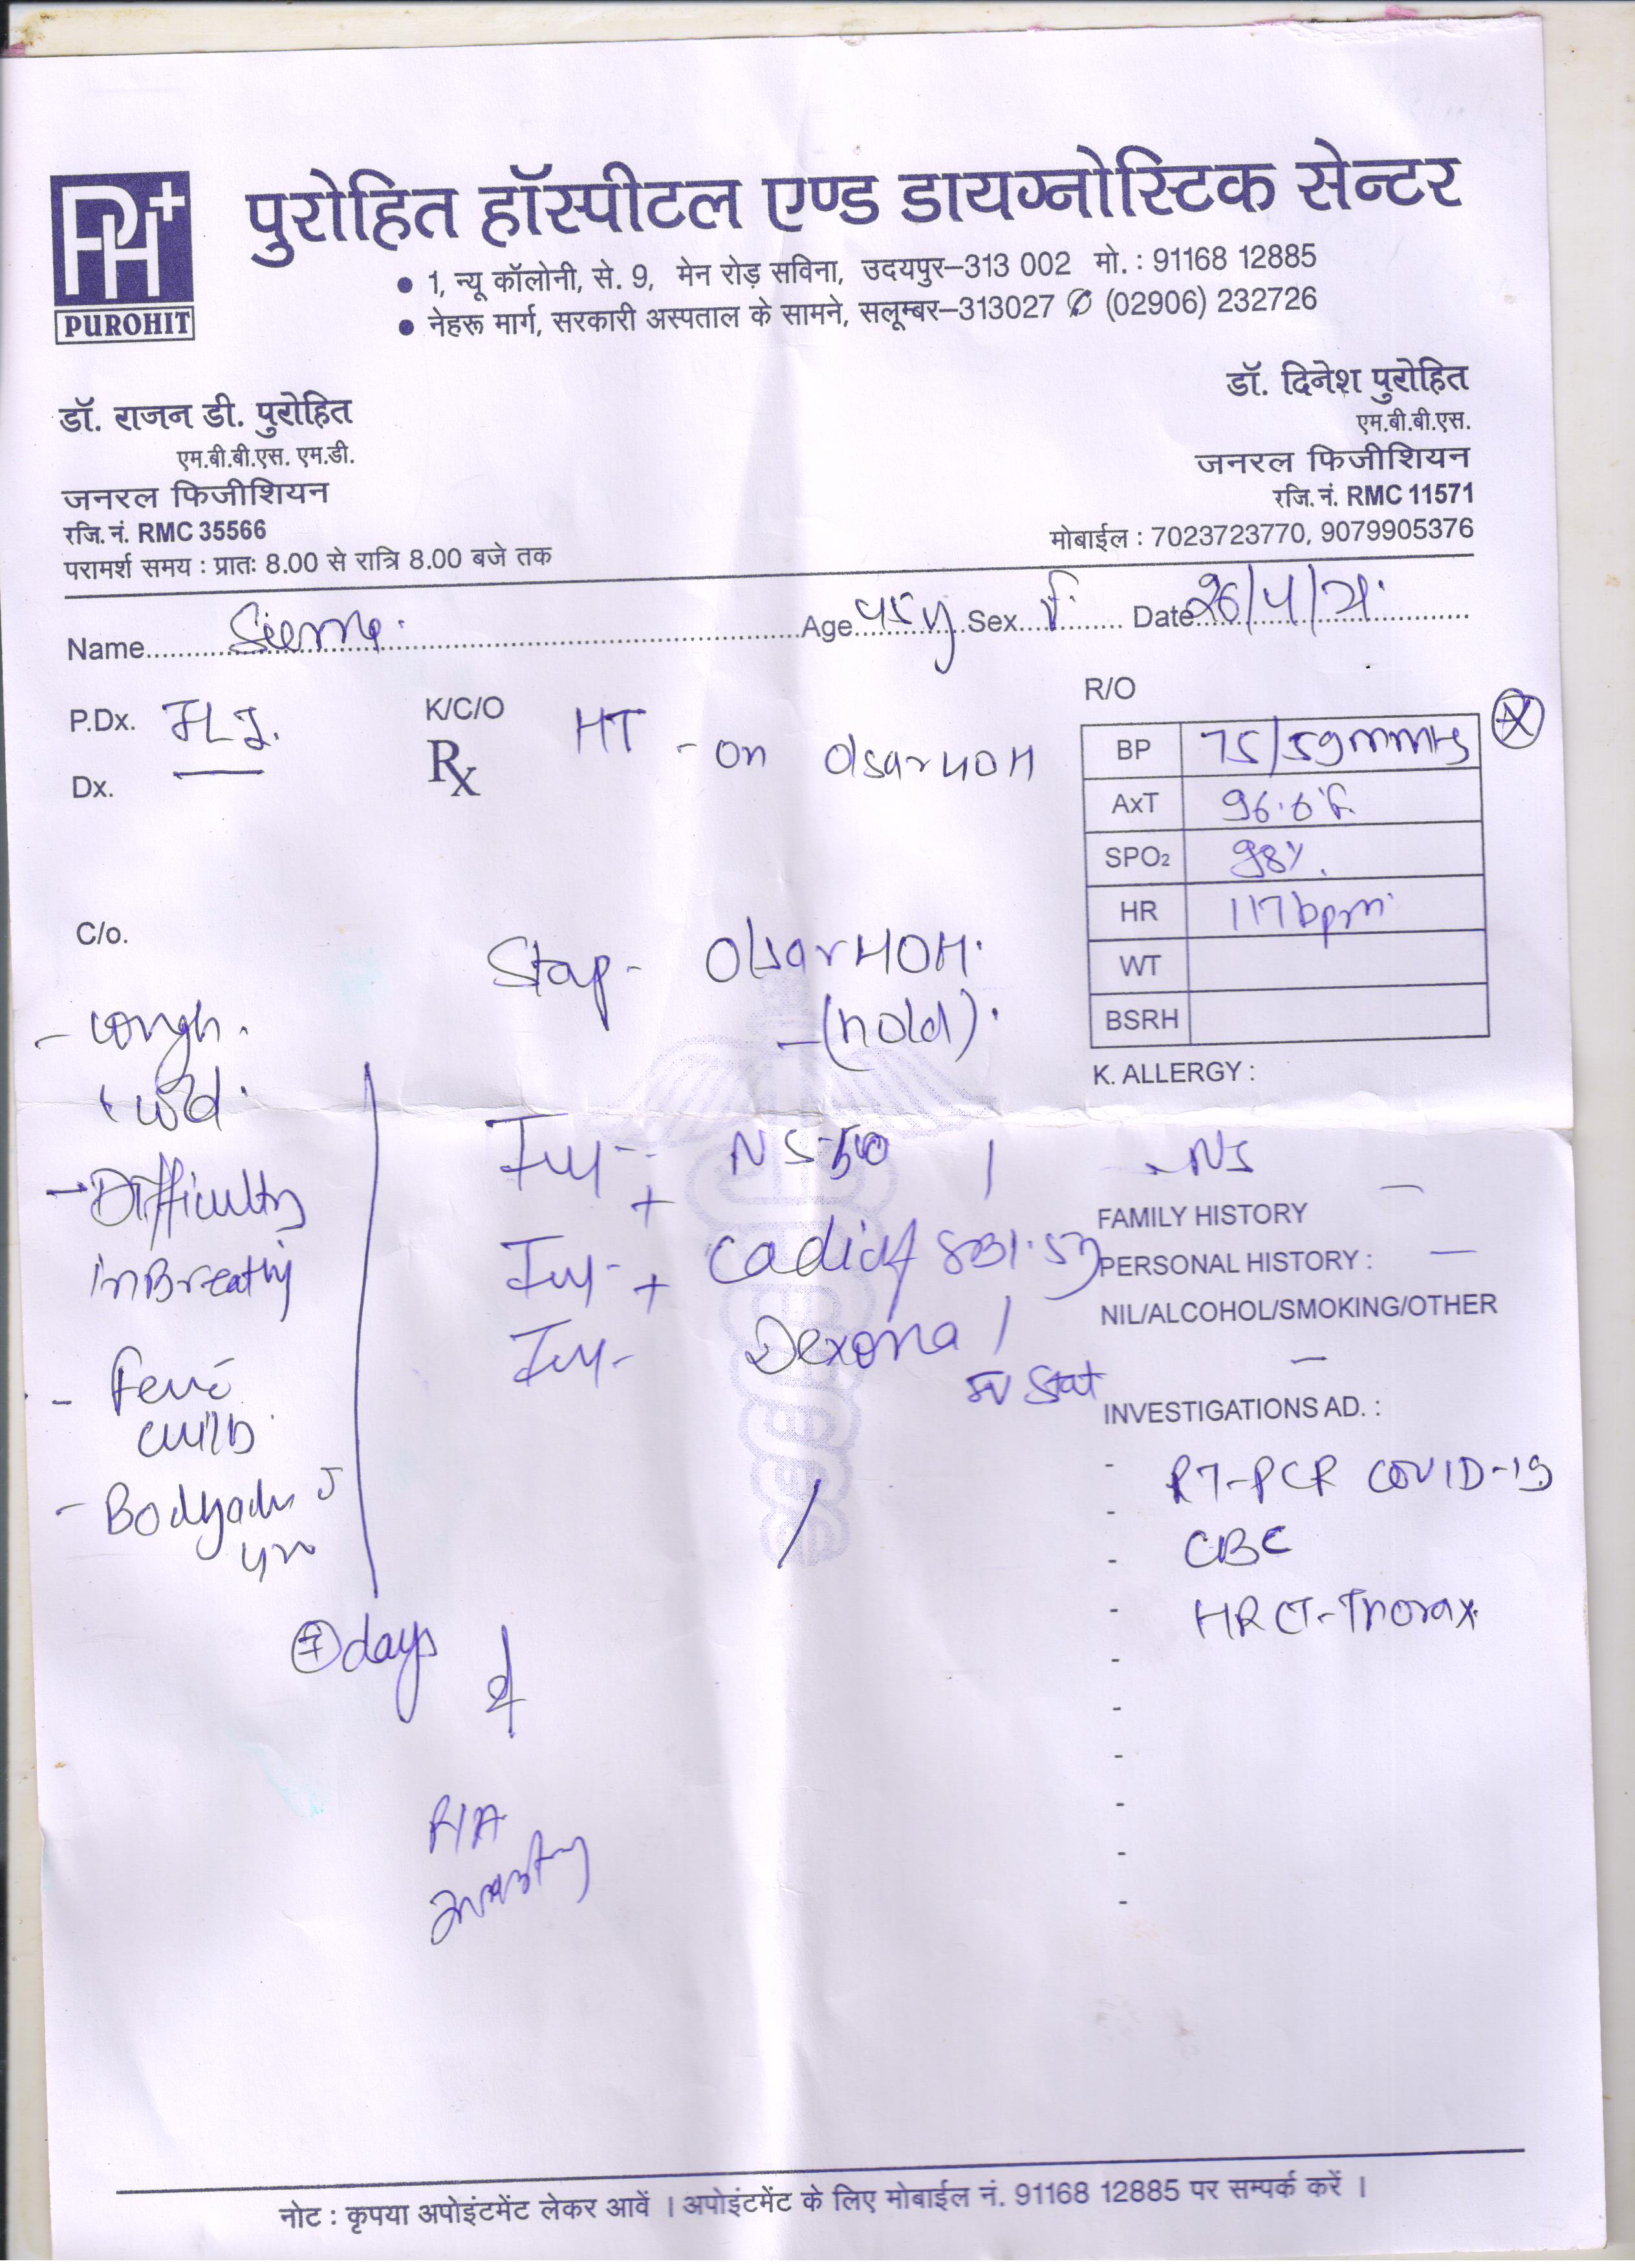 पुरोहित हॉस्पीटल एण्ड डायग्नोस्टिक सेन्टर
PH+
PUROHIT
• 1, न्यू कॉलोनी, से. 9, मेन रोड़ सविना, उदयपुर–313 002 मो. : 91168 12885
• नेहरू मार्ग, सरकारी अस्पताल के सामने, सलूम्बर–313027 ✆ (02906) 232726
डॉ. राजन डी. पुरोहित
एम.बी.बी.एस. एम.डी.
जनरल फिजीशियन
रजि. नं. RMC 35566
परामर्श समय : प्रातः 8.00 से रात्रि 8.00 बजे तक
डॉ. दिनेश पुरोहित
एम.बी.बी.एस.
जनरल फिजीशियन
रजि. नं. RMC 11571
मोबाईल : 7023723770, 9079905376
Name Age 45y Sex F. Date 26/4/21.
P.Dx.
Dx.
K/C/O HT - on Olsar
Rx
R/O
BP 75/59mmHg
AxT 96.6°F.
SPO2 98%.
HR 117bpm
WT
BSRH
K. ALLERGY :
- NS
FAMILY HISTORY –
PERSONAL HISTORY : –
NIL/ALCOHOL/SMOKING/OTHER
–
INVESTIGATIONS AD. :
- RT-PCR COVID-19
- CBC
- HRCT-Thorax
C/o.
- cough.
+ cold.
- Difficulty
in Breathing
- Fever
- Bodyache
days
Stop - Olsar
- (hold).
Inj - NS
+
Inj -
+
Inj - Dexona
IV Stat
नोट : कृपया अपोइंटमेंट लेकर आवें । अपोइंटमेंट के लिए मोबाईल नं. 91168 12885 पर सम्पर्क करें ।